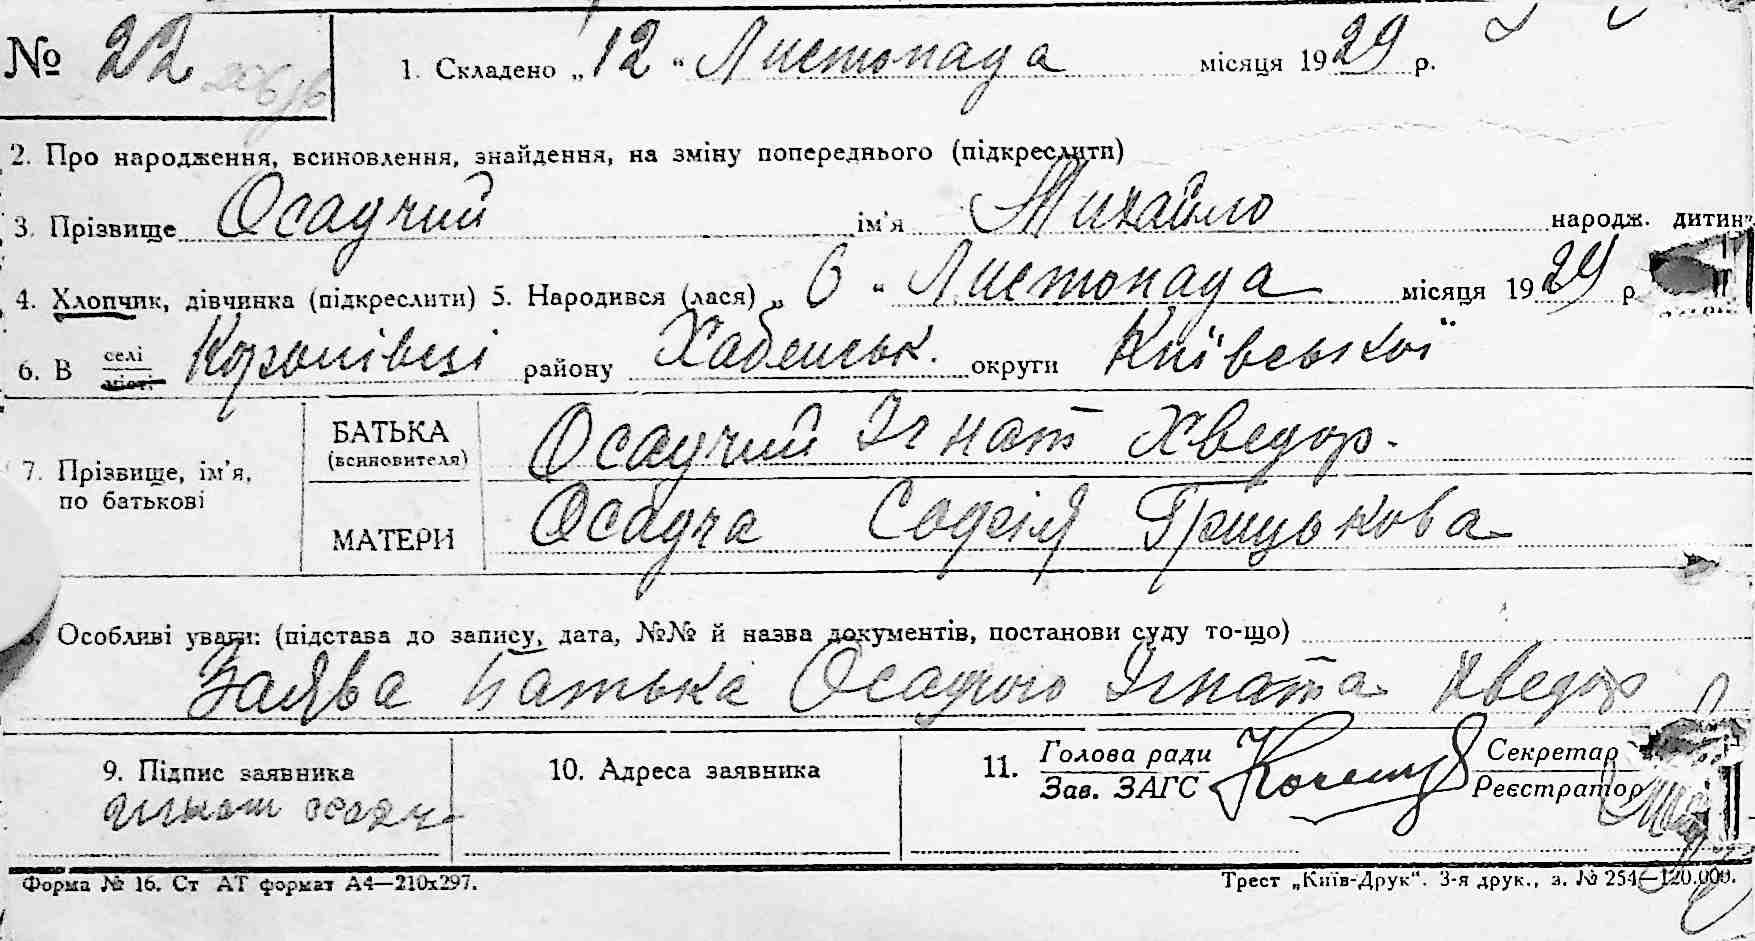 № 22 1. Складено „12" Листопада місяця 1929 р.
2. Про народження, всиновлення, знайдення, на зміну попереднього (підкреслити)
3. Прізвище Осадчий ім'я Михайло народж. дитини
4. Хлопчик, дівчинка (підкреслити) 5. Народився (лася) „6" Листопада місяця 1929 р
6. В селі міст. району Хабенськ. округи Київської
7. Прізвище, ім'я, по батькові
БАТЬКА (всиновителя) Осадчий Ігнат Хведор.
МАТЕРИ Осадча Софія Грицькова
Особливі уваги: (підстава до запису, дата, №№ й назва документів, постанови суду то-що)
Заява батька Осадчого Ігната Хведор
9. Підпис заявника 10. Адреса заявника 11. Голова ради Секретар
Зав. ЗАГС Реєстратор
Ігнат осадч
Форма № 16. Ст АТ формат А4—210х297. Трест „Київ-Друк". 3-я друк., з. № 254—120.000.